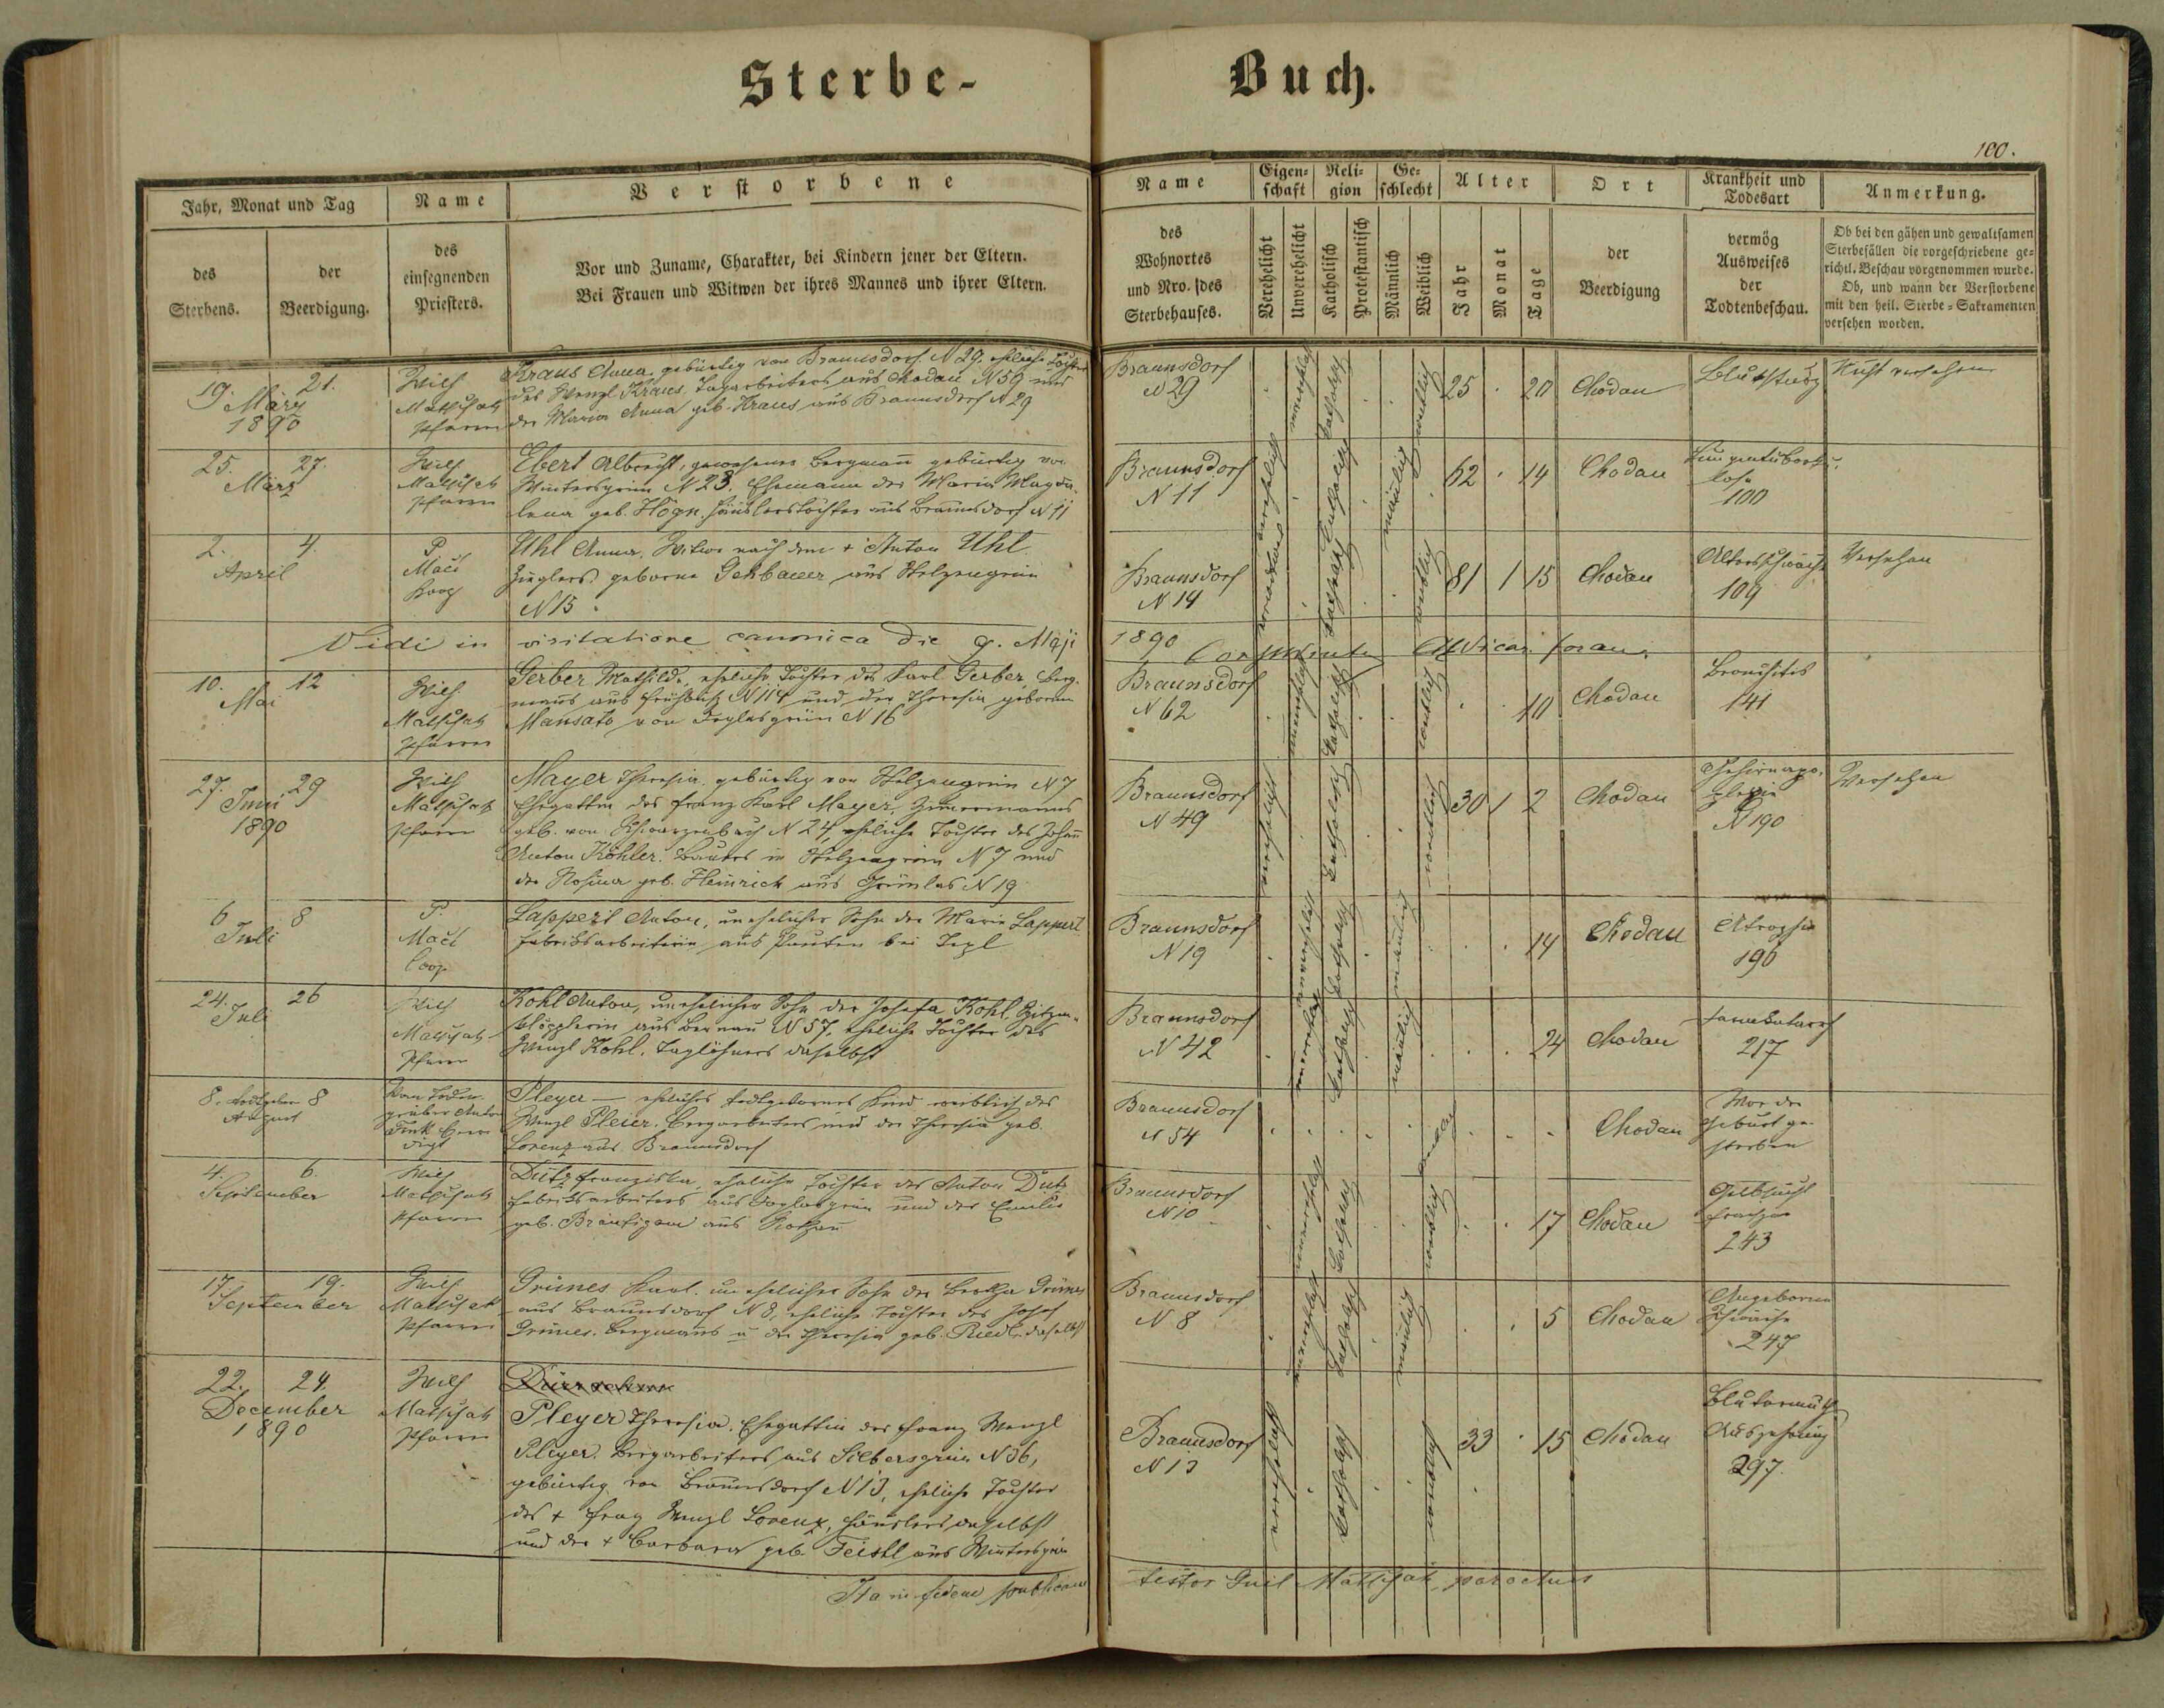 Sterbe-
Buch.
100.
Jahr, Monat und Tag
des Sterbens.
der Beerdigung.
Name
des
einsegnenden
Priesters.
Verstorbene
Vor und Zuname, Charakter, bei Kindern jener der Eltern.
Bei Frauen und Witwen der ihres Mannes und ihrer Eltern.
Name
des
Wohnortes
und Nro. des
Sterbehauses.
Eigenschaft
Verehelicht
Unverehelicht
Religion
Katholisch
Protestantisch
Geschlecht
Männlich
Weiblich
Alter
Jahr
Monat
Tage
Ort
der
Beerdigung
Krankheit und
Todesart
vermög
Ausweises
der
Todtenbeschau.
Anmerkung.
Ob bei den gähen und gewaltsamen
Sterbefällen die vorgeschriebene ge-
richtl. Beschau vorgenommen wurde.
Ob, und wann der Verstorbene
mit den heil. Sterbe-Sakramenten
versehen worden.
19. 21.
März
1890
Kraus Anna, gebürtig von Braunsdorf N 29. eheliche Tochter
des Wenzl Kraus, Tagarbeiters aus Chodau N 59 und
der Maria Anna geb. Kraus aus Braunsdorf N 29
Braunsdorf
N 29
unverehelicht katholisch weiblich
25 . 20
Chodau
Blutsturz
Nicht versehen
25. 27.
März
Ebert Albrecht, gewesener Bergmann gebürtig von
Wintersgrün N 23. Ehemann der Maria Magda-
lena geb. Högn, Häuslerstochter aus Braunsdorf N 11
Braunsdorf
N 11
verehelicht katholisch männlich
62 . 14
Chodau
Lungentuberku-
lose
100
2. 4.
April
P.
Mači
Koop
Uhl Anna, Witwe nach dem + Anton Uhl
geborne Gehbauer aus Stelzengrün
N 15.
Braunsdorf
N 14
katholisch weiblich
81 1 15
Chodau
Altersschwäche
109
Versehen
Vidi in visitatione canonica die 9. Maji
1890
10. 12
Mai
Pfarrer
Gerber Mathilde, eheliche Tochter des Karl Gerber, Berg-
manns aus N 114 und der Theresia geborne
von Doglasgrün N 16
Braunsdorf
N 62
unverehelicht katholisch weiblich
10
Chodau
Bronchitis
141
27. 29
Juni
1890
Pfarrer
Mayer Theresia, gebürtig von Stelzengrün N 7
Ehegattin des Franz Karl Mayer, Zimmermanns
geb. von Schwarzenbach N 24, eheliche Tochter des Johann
Anton Köhler, Bauers in Stelzengrün N 7 und
der Rosina geb. Heinrich aus Grünlas N 19
Braunsdorf
N 49
verehelicht katholisch weiblich
30 1 2
Chodau
Gehirnapo-
plexie
N 190
Versehen
6 8
Juli
P.
Mači
Coop.
Lapperl Anton, unehelicher Sohn der Maria Lapperl
Fabriksarbeiterin aus bei Tepl
Braunsdorf
N 19
unverehelicht katholisch männlich
14
Chodau
Atrophie
196
24. 26
Juli
Pfarrer
Kohl Anton, unehelicher Sohn der Josefa Kohl Spitzen-
klöpplerin aus Bernau N 57, eheliche Tochter des
Wenzl Kohl, Taglöhners daselbst
Braunsdorf
N 42
unverehelicht katholisch männlich
24
Chodau
Darmkatarrh
217
8. todtgeboren 8
August
Vom Todten-
gräber Anton
Fenk beer-
digt
Pleyer — eheliches todtgebornes Kind weiblich des
Wenzl Pleier, Bergarbeiters und der Theresia geb.
Lorenz aus Braunsdorf
Braunsdorf
N 54
Chodau
Vor der
Geburt ge-
storben
4. 6.
September
Pfarrer
Dutz Franziska, eheliche Tochter des Anton Dutz
Fabriksarbeiters aus Doglasgrün und der Emilie
geb. Bräutigam aus
Braunsdorf
N 10
unverehelicht katholisch weiblich
17
Chodau
Gelbsucht
Fraisen
243
17. 19.
September
Pfarrer
Grünes Karl, unehelicher Sohn der Bertha Grünes
aus Braunsdorf N 8, eheliche Tochter des Josef
Grünes, Bergmanns u der Theresia geb. Riedl daselbst
Braunsdorf
N 8
unverehelicht katholisch männlich
5
Chodau
Angeborene
Schwäche
247
22. 24.
December
1890
Pfarrer
Pleyer Theresia, Ehegattin des Franz Wenzl
Pleyer, Bergarbeiters aus Silbersgrün N 36,
gebürtig von Braunsdorf N 13, eheliche Tochter
des + Franz Wenzl Lorenz, Häuslers daselbst
und der + Barbara geb. Feistl aus Wintersgrün
Braunsdorf
N 13
verehelicht katholisch weiblich
33 . 15
Chodau
Blutarmuth
Auszehrung
297.
Ita in fidem publicam
testor Guil. Matschak, parochus